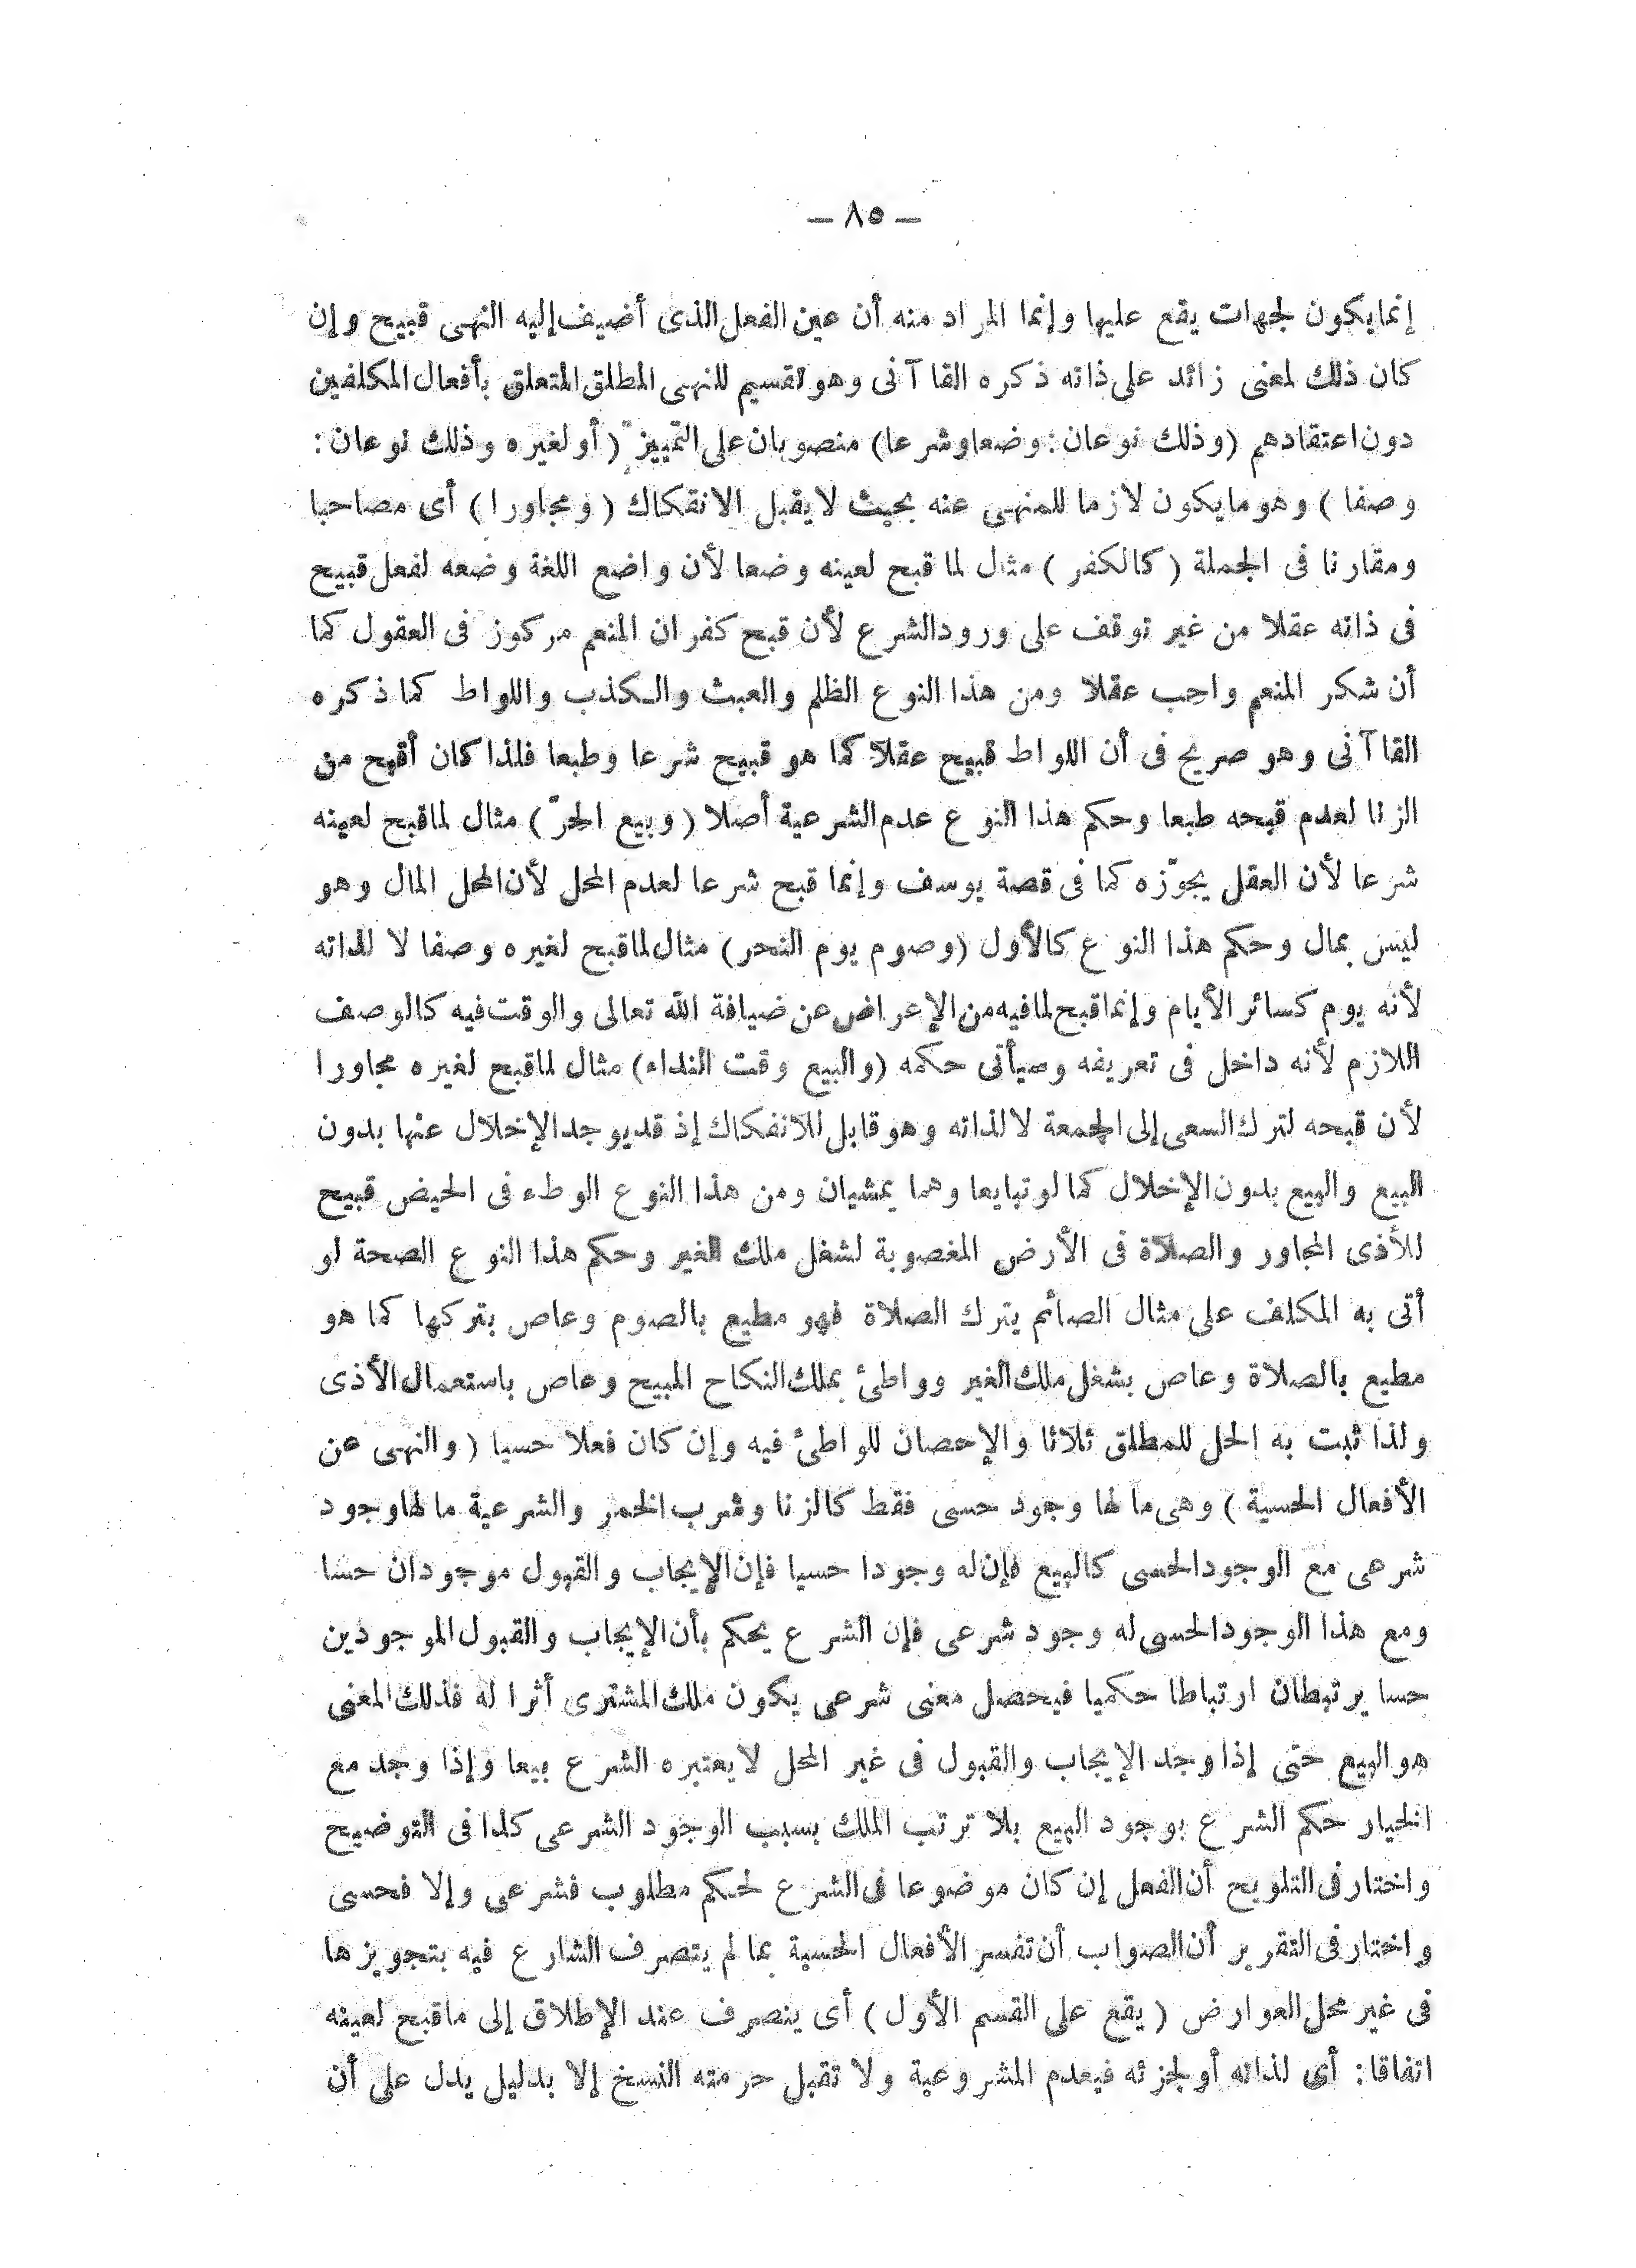 — ٨٥ —
إنما يكون لجهات يقع عليها وإنما المراد منه أن عين الفعل الذى أضيف إليه النهى قبيح وإن
كان ذلك لمعنى زائد على ذاته ذكره القاآنى وهو تقسيم للنهى المطلق المتعلق بأفعال المكلفين
دون اعتقادهم (وذلك نوعان: وضعا وشرعا) منصوبان على التمييز (أو لغيره وذلك نوعان:
وصفا) وهو ما يكون لازما للمنهى عنه بحيث لا يقبل الانفكاك (ومجاورا) أى مصاحبا
ومقارنا فى الجملة (كالكفر) مثال لما قبح لعينه وضعا لأن واضع اللغة وضعه لفعل قبيح
فى ذاته عقلا من غير توقف على ورود الشرع لأن قبح كفران المنعم مركوز فى العقول كما
أن شكر المنعم واجب عقلا ومن هذا النوع الظلم والعبث والكذب واللواط كما ذكره
القاآنى وهو صريح فى أن اللواط قبيح عقلا كما هو قبيح شرعا وطبعا فلذا كان أقبح من
الزنا لعدم قبحه طبعا وحكم هذا النوع عدم الشرعية أصلا (وبيع الحرّ) مثال لما قبح لعينه
شرعا لأن العقل يجوّزه كما فى قصة يوسف وإنما قبح شرعا لعدم المحل لأن المحل المال وهو
ليس بمال وحكم هذا النوع كالأول (وصوم يوم النحر) مثال لما قبح لغيره وصفا لا لذاته
لأنه يوم كسائر الأيام وإنما قبح لما فيه من الإعراض عن ضيافة الله تعالى والوقت فيه كالوصف
اللازم لأنه داخل فى تعريفه وسيأتى حكمه (والبيع وقت النداء) مثال لما قبح لغيره مجاورا
لأن قبحه لترك السعى إلى الجمعة لا لذاته وهو قابل للانفكاك إذ قد يوجد الإخلال عنها بدون
البيع والبيع بدون الإخلال كما لو تبايعا وهما يمشيان ومن هذا النوع الوطء فى الحيض قبيح
للأذى المجاور والصلاة فى الأرض المغصوبة لشغل ملك الغير وحكم هذا النوع الصحة لو
أتى به المكلف على مثال الصائم يترك الصلاة فهو مطيع بالصوم وعاص بتركها كما هو
مطيع بالصلاة وعاص بشغل ملك الغير وواطئ بملك النكاح المبيح وعاص باستعمال الأذى
ولذا ثبت به الحل للمطلق ثلاثا والإحصان للواطئ فيه وإن كان فعلا حسيا (والنهى عن
الأفعال الحسية) وهى ما لها وجود حسى فقط كالزنا وشرب الخمر والشرعية ما لها وجود
شرعى مع الوجود الحسى كالبيع فإن له وجودا حسيا فإن الإيجاب والقبول موجودان حسا
ومع هذا الوجود الحسى له وجود شرعى فإن الشرع يحكم بأن الإيجاب والقبول الموجودين
حسا يرتبطان ارتباطا حكميا فيحصل معنى شرعى يكون ملك المشترى أثرا له فذلك المعنى
هو البيع حتى إذا وجد الإيجاب والقبول فى غير المحل لا يعتبره الشرع بيعا وإذا وجد مع
الخيار حكم الشرع بوجود البيع بلا ترتب الملك بسبب الوجود الشرعى كذا فى التوضيح
واختار فى التلويح أن الفعل إن كان موضوعا فى الشرع لحكم مطلوب فشرعى وإلا فحسى
واختار فى التقرير أن الصواب أن تفسر الأفعال الحسية بما لم يتصرف الشارع فيه بتجويزها
فى غير محل العوارض (يقع على القسم الأول) أى ينصرف عند الإطلاق إلى ما قبح لعينه
اتفاقا: أى لذاته أو لجزئه فيعدم المشروعية ولا تقبل حرمته النسخ إلا بدليل يدل على أن